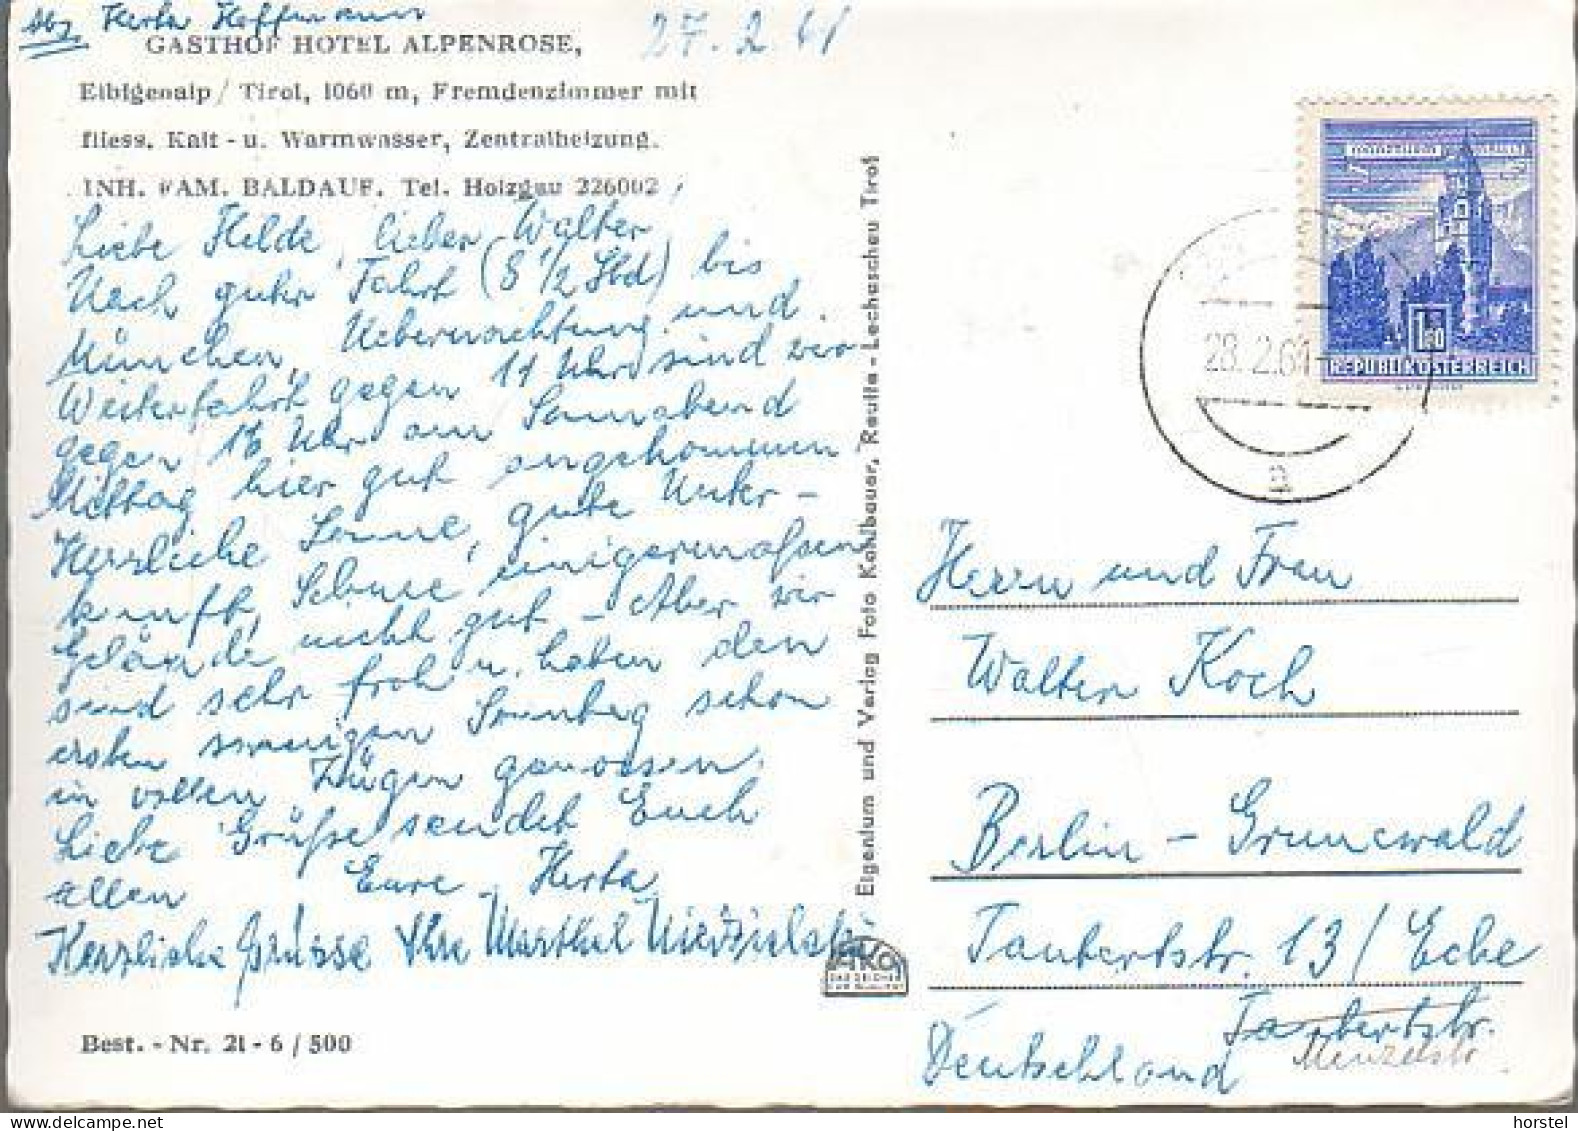 Abs. Herta Hoffmann
27.2.61
GASTHOF HOTEL ALPENROSE,
Elbigenalp / Tirol, 1060 m, Fremdenzimmer mit
fliess. Kalt - u. Warmwasser, Zentralheizung.
INH. FAM. BALDAUF. Tel. Holzgau 226002
Liebe Hilde, lieber Walter
Nach guter Fahrt (8 1/2 Std) bis
München, Uebernachtung und
Weiterfahrt gegen 11 Uhr sind wir
gegen 16 Uhr am Sonnabend
Mittag hier gut angekommen
Herrliche Sonne, gute Unter-
kunft, Schnee einigermaßen
Gelände nicht gut - Aber wir
sind sehr froh u. haben den
ersten sonnigen Sonntag schon
in vollen Zügen genossen.
Liebe Grüße sendet Euch
allen Eure Herta
Herzliche Grüsse Ihre
Best. - Nr. 21 - 6 / 500
Eigentum und Verlag Foto Kohlbauer, Reutte - Lechaschau Tirol
AKO
DAS ZEICHEN
FÜR QUALITÄT
REPUBLIK ÖSTERREICH
1.80
28. 2. 61
a
Herrn und Frau
Walter Koch
Berlin - Grunewald
Taubertstr. 13 / Ecke
Taubertstr.
Menzelstr.
Deutschland
horstel